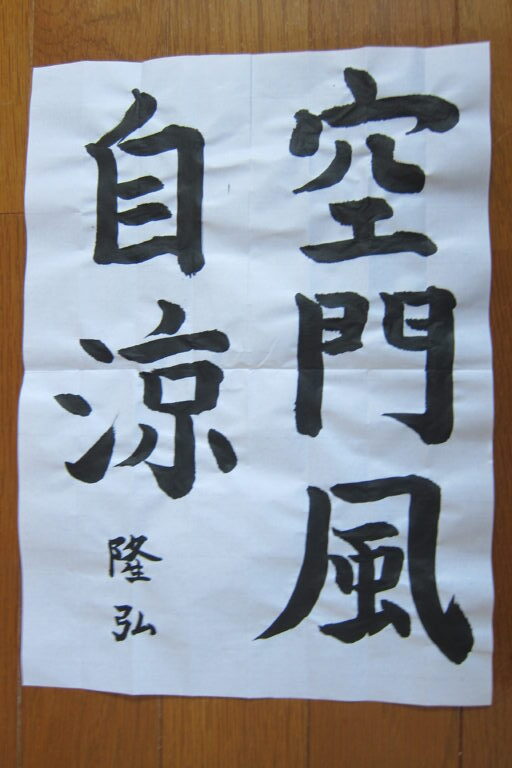 空門風
自凉
隆弘